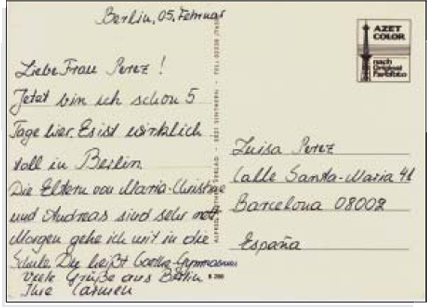 Berlin, 05. Februar
Liebe Frau Perez!
Jetzt bin ich schon 5
Tage hier. Es ist wirklich
toll in Berlin
Die Eltern von Maria-Christine
und Andreas sind sehr nett.
Morgen gehe ich mit in die
Schule. Die heißt Goethe-Gymnasium
Viele Grüße aus Berlin
Ihre Carmen
AZET
COLOR
nach
Original
Farbfoto
Luisa Perez
Calle Santa-Maria 41
Barcelona 08002
España